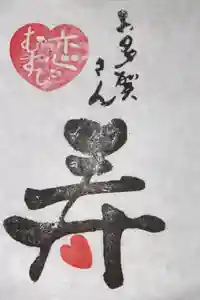 むすび
お多賀
さん
寿